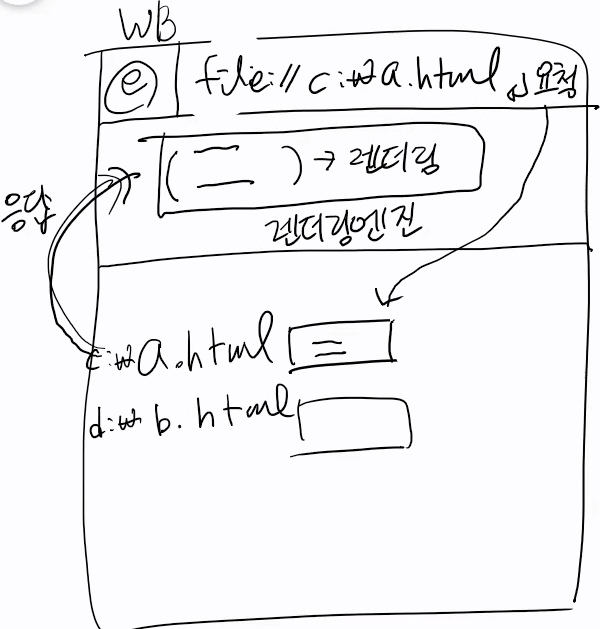 WB
e file:// c:₩a.html ↵ 요청
( ) → 렌더링
응답
렌더링엔진
c:₩a.html
d:₩b.html